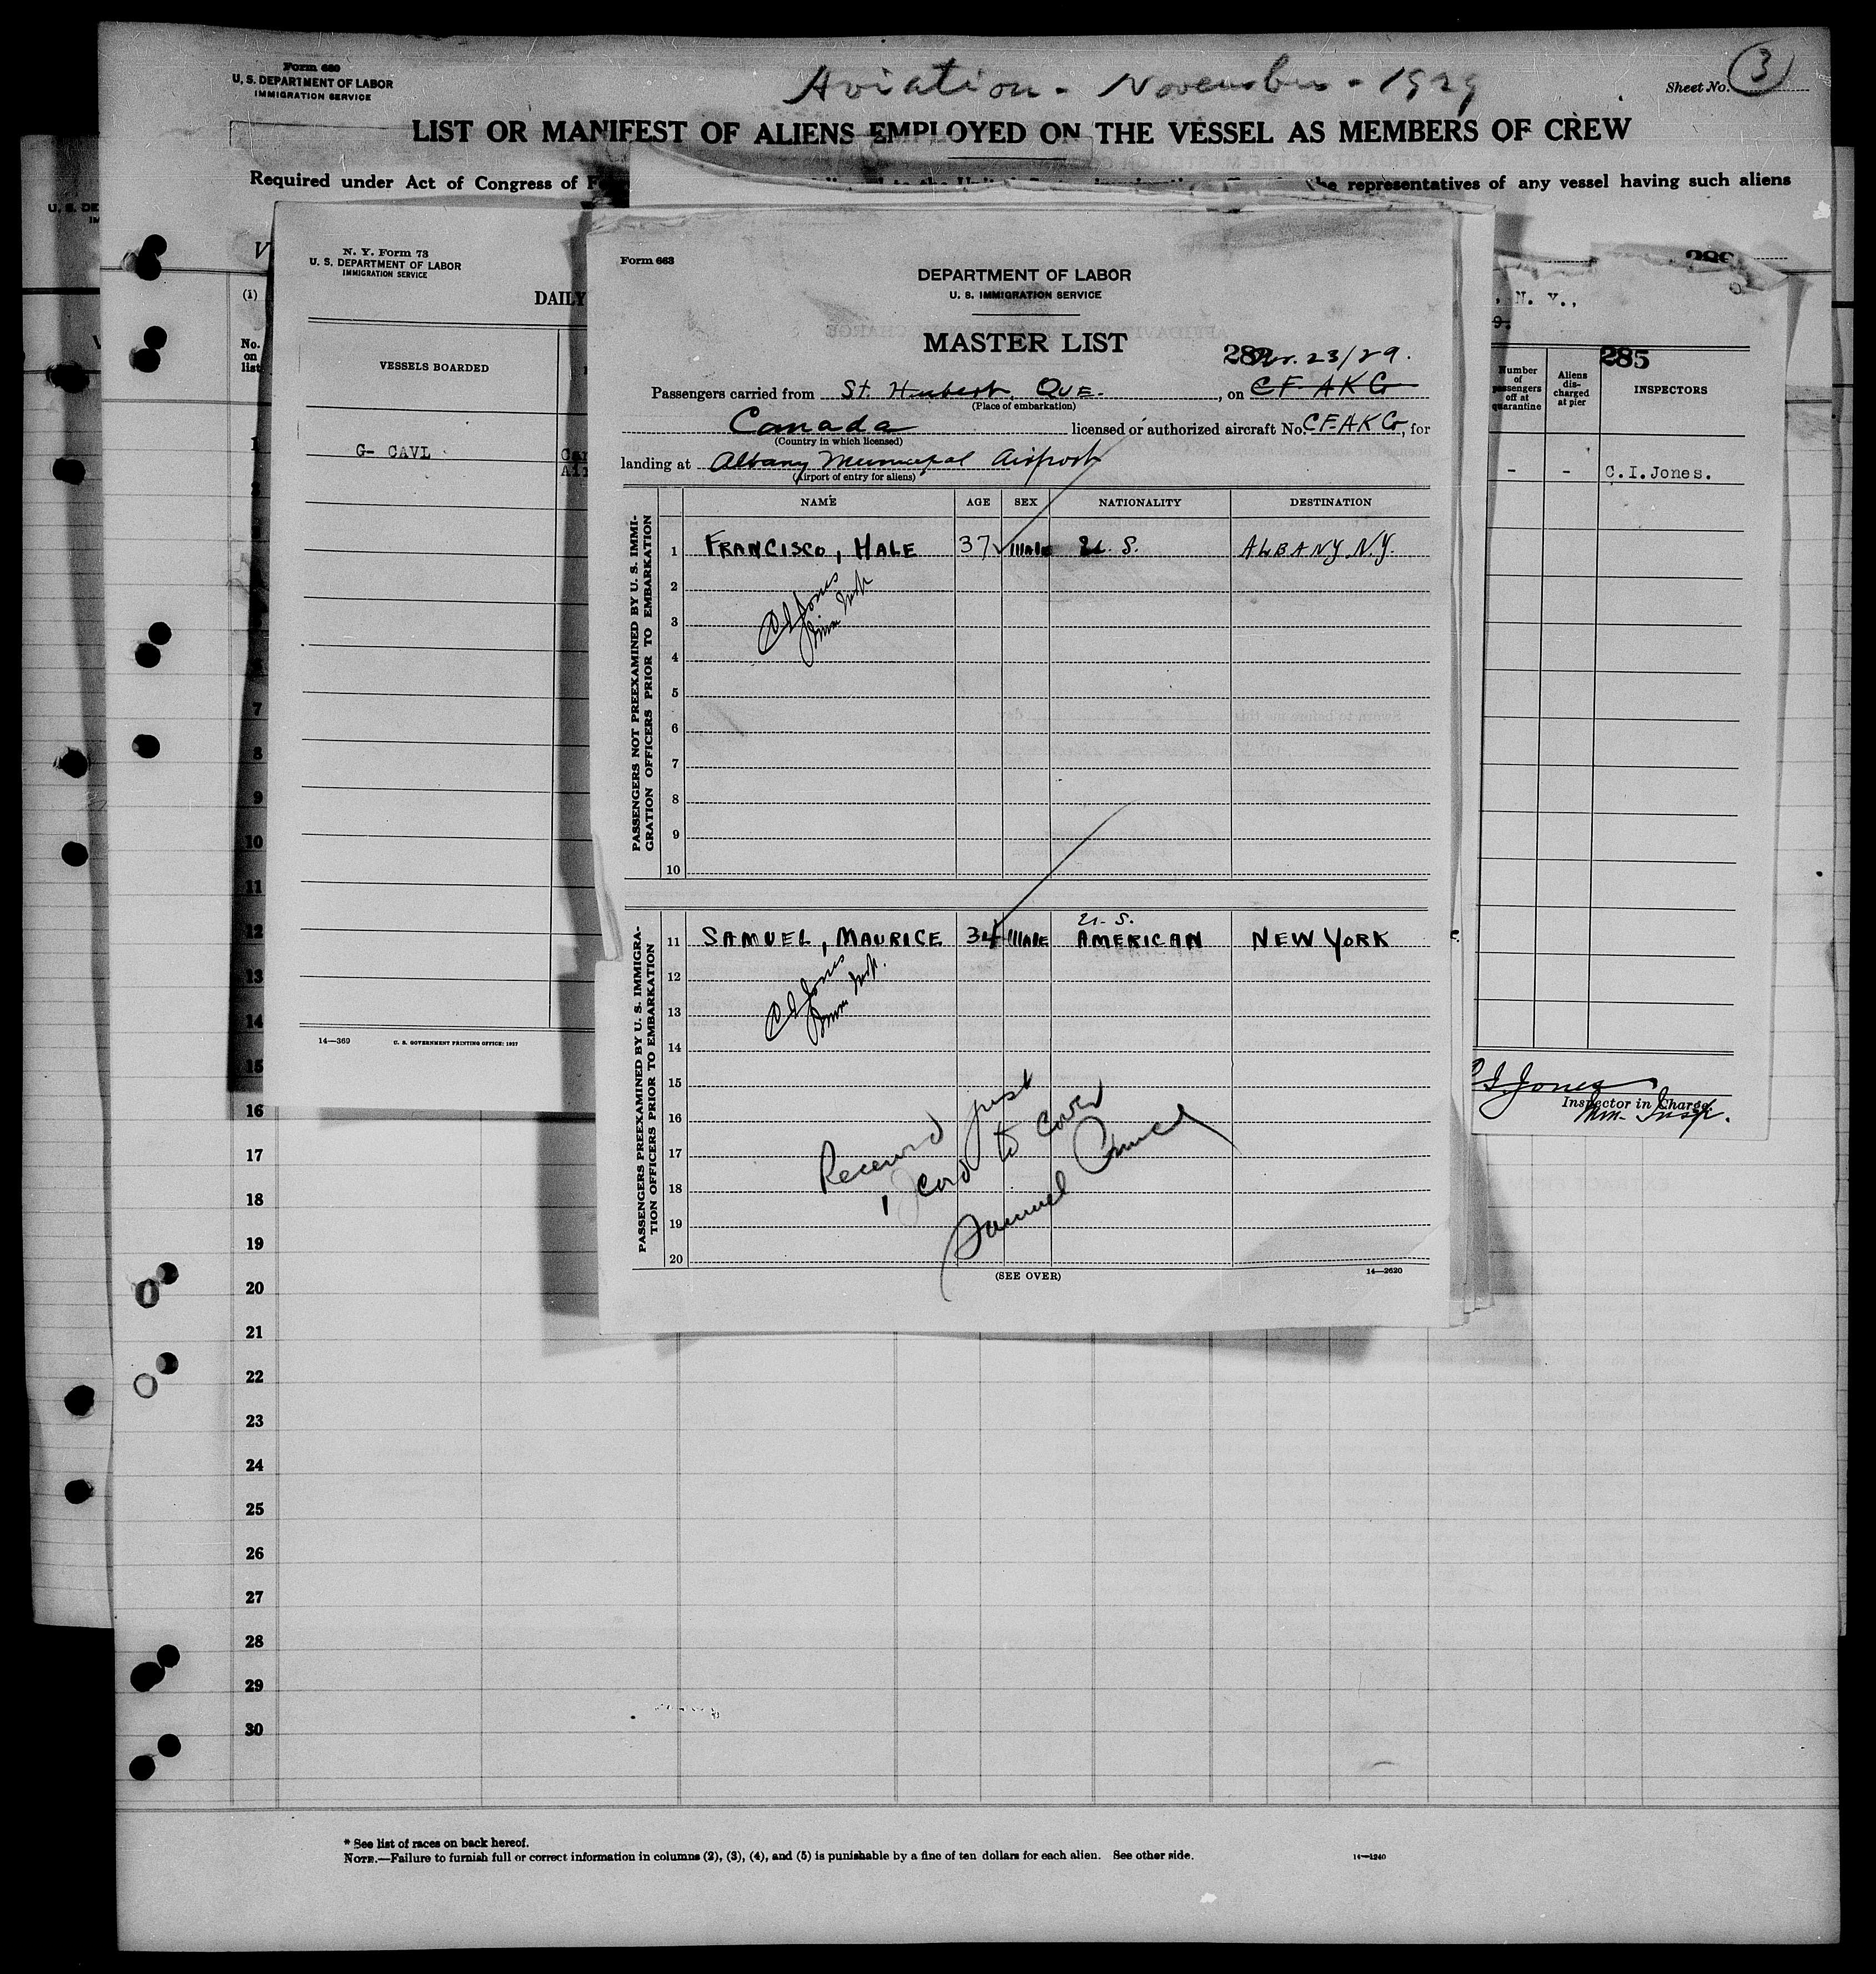 Form 680
U. S. DEPARTMENT OF LABOR
IMMIGRATION SERVICE
Aviation - November - 1929
Sheet No. 3
LIST OR MANIFEST OF ALIENS EMPLOYED ON THE VESSEL AS MEMBERS OF CREW
Required under Act of Congress of
representatives of any vessel having such aliens
U. S. DE
IM
V
(1)
No.
on
list
N. Y. Form 73
U. S. DEPARTMENT OF LABOR
IMMIGRATION SERVICE
DAILY
VESSELS BOARDED
G- CAVL
14—369
U. S. GOVERNMENT PRINTING OFFICE: 1927
Form 663
DEPARTMENT OF LABOR
U. S. IMMIGRATION SERVICE
MASTER LIST
23/29.
Passengers carried from St. Hubert, QUE. , on CF-AKG
(Place of embarkation)
Canada licensed or authorized aircraft No. CF-AKG, for
(Country in which licensed)
landing at Albany Municipal Airport
(Airport of entry for aliens)
NAME AGE SEX NATIONALITY DESTINATION
PASSENGERS NOT PREEXAMINED BY U. S. IMMI-
GRATION OFFICERS PRIOR TO EMBARKATION
1 FRANCISCO, HALE 37 Male U. S. ALBANY N.Y.
2
3
4
5
6
7
8
9
10
C I Jones
Imm Insp.
PASSENGERS PREEXAMINED BY U. S. IMMIGRA-
TION OFFICERS PRIOR TO EMBARKATION
U. S.
11 SAMUEL, MAURICE 34 Male AMERICAN NEW YORK
12
13
14
15
16
17
18
19
20
C I Jones
Imm Insp.
Received just
1 card to cover
Samuel
(SEE OVER)
14—2620
N. Y.,
285
Number
of
passengers
off at
quarantine
Aliens
dis-
charged
at pier
INSPECTORS
- - C.I.Jones.
C I Jones
Inspector in Charge.
Imm. Insp.
7
8
9
10
11
12
13
14
15
16
17
18
19
20
21
22
23
24
25
26
27
28
29
30
* See list of races on back hereof.
NOTE.—Failure to furnish full or correct information in columns (2), (3), (4), and (5) is punishable by a fine of ten dollars for each alien. See other side.
14—1240